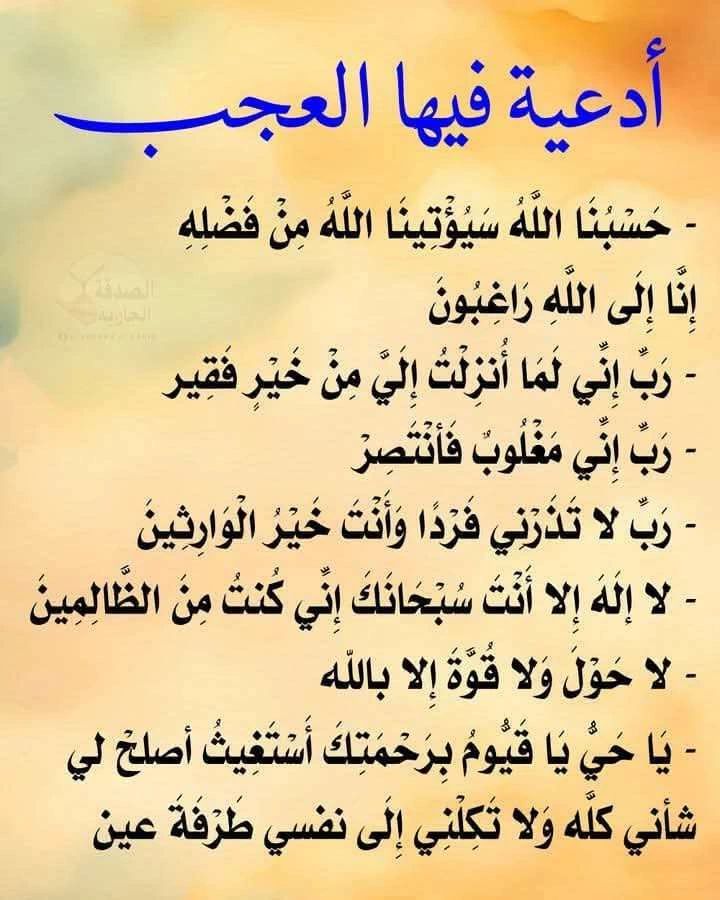 أدعية فيها العجب
- حَسْبُنَا اللَّهُ سَيُؤْتِينَا اللَّهُ مِنْ فَضْلِهِ
إِنَّا إِلَى اللَّهِ رَاغِبُونَ
- رَبِّ إِنِّي لَمَا أُنزِلْتُ إِلَيَّ مِنْ خَيْرٍ فَقِير
- رَبِّ إِنِّي مَغْلُوبٌ فَأَنْتَصِرْ
- رَبِّ لا تَذَرْنِي فَرْدًا وَأَنْتَ خَيْرُ الْوَارِثِينَ
- لا إلهَ إلا أَنْتَ سُبْحَانَكَ إِنِّي كُنتُ مِنَ الظَّالِمِينَ
- لا حَوْلَ وَلا قُوَّةَ إِلا بالله
- يَا حَيُّ يَا قَيُّومُ بِرَحْمَتِكَ أَسْتَغِيثُ أصلحْ لي
شأني كلَّه وَلا تَكِلْنِي إِلَى نفسي طَرْفَةَ عين
الصدقة
الجارية